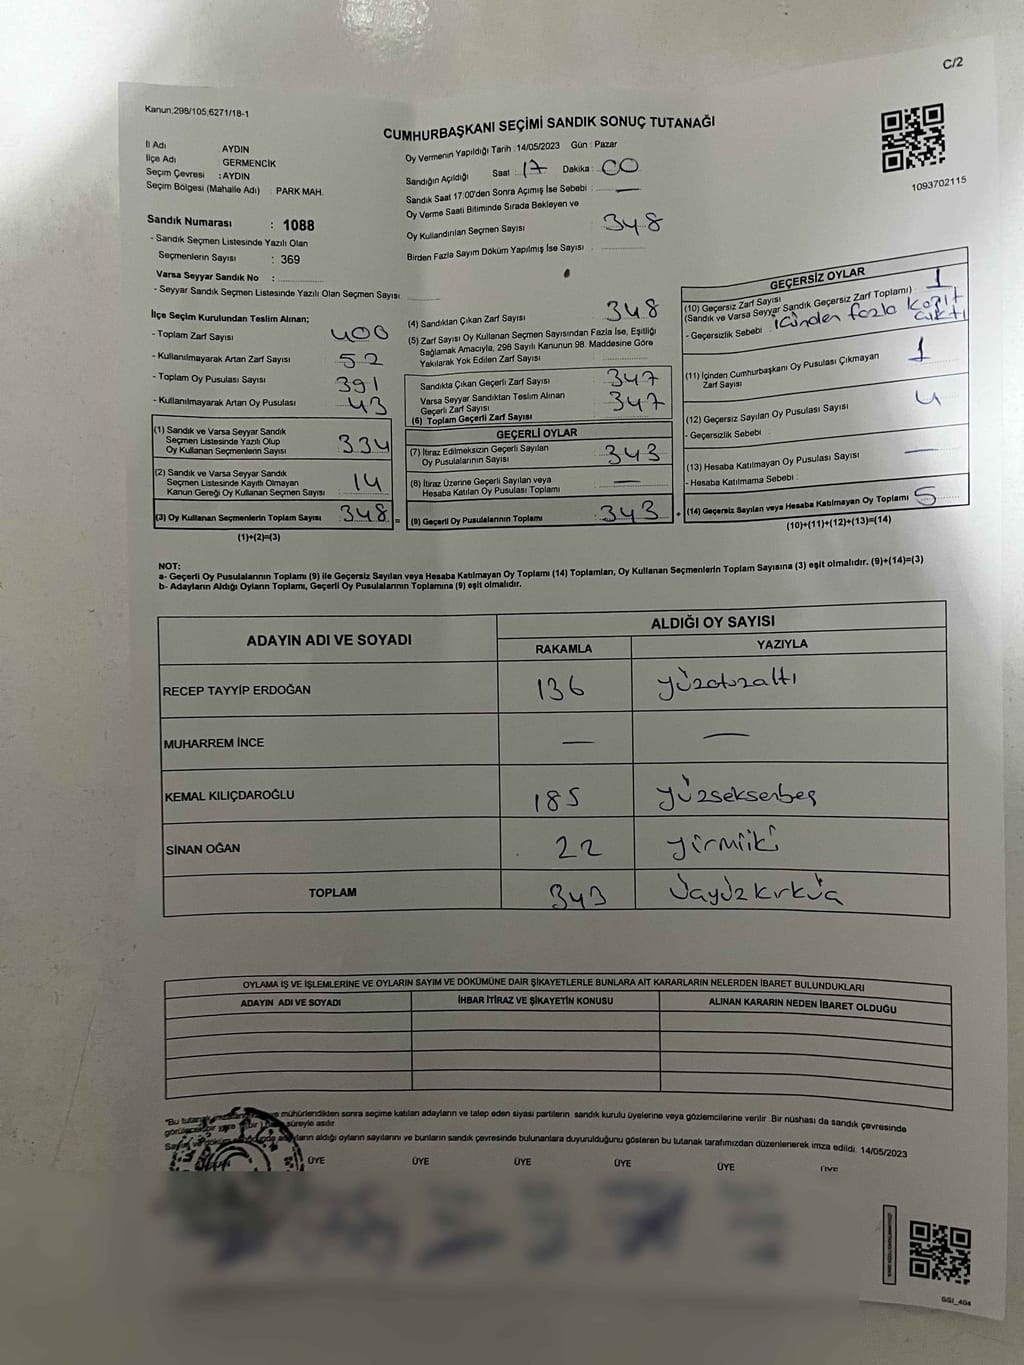 C/2
Kanun;298/105;6271/18-1
CUMHURBAŞKANI SEÇİMİ SANDIK SONUÇ TUTANAĞI
1093702115
İl Adı : AYDIN
İlçe Adı : GERMENCİK
Seçim Çevresi : AYDIN
Seçim Bölgesi (Mahalle Adı) : PARK MAH.
Oy Vermenin Yapıldığı Tarih : 14/05/2023 Gün : Pazar
Sandığın Açıldığı Saat : 17 Dakika : 00
Sandık Saat 17:00'den Sonra Açımış İse Sebebi : —
Oy Verme Saati Bitiminde Sırada Bekleyen ve
Oy Kullandırılan Seçmen Sayısı 348
Birden Fazla Sayım Döküm Yapılmış İse Sayısı
Sandık Numarası : 1088
- Sandık Seçmen Listesinde Yazılı Olan
Seçmenlerin Sayısı : 369
Varsa Seyyar Sandık No :
- Seyyar Sandık Seçmen Listesinde Yazılı Olan Seçmen Sayısı
İlçe Seçim Kurulundan Teslim Alınan;
- Toplam Zarf Sayısı 400
- Kullanılmayarak Artan Zarf Sayısı 52
- Toplam Oy Pusulası Sayısı 391
- Kullanılmayarak Artan Oy Pusulası 43
(1) Sandık ve Varsa Seyyar Sandık
Seçmen Listesinde Yazılı Olup
Oy Kullanan Seçmenlerin Sayısı 334
(2) Sandık ve Varsa Seyyar Sandık
Seçmen Listesinde Kayıtlı Olmayan
Kanun Gereği Oy Kullanan Seçmen Sayısı 14
(3) Oy Kullanan Seçmenlerin Toplam Sayısı 348 =
(1)+(2)=(3)
(4) Sandıktan Çıkan Zarf Sayısı 348
(5) Zarf Sayısı Oy Kullanan Seçmen Sayısından Fazla İse, Eşitliği
Sağlamak Amacıyla, 298 Sayılı Kanunun 98. Maddesine Göre
Yakılarak Yok Edilen Zarf Sayısı
Sandıkta Çıkan Geçerli Zarf Sayısı 347
Varsa Seyyar Sandıktan Teslim Alınan
Geçerli Zarf Sayısı 347
(6) Toplam Geçerli Zarf Sayısı
GEÇERLİ OYLAR
(7) İtiraz Edilmeksizin Geçerli Sayılan
Oy Pusulalarının Sayısı : 343
(8) İtiraz Üzerine Geçerli Sayılan veya
Hesaba Katılan Oy Pusulası Toplamı : —
(9) Geçerli Oy Pusulalarının Toplamı : 343 +
GEÇERSİZ OYLAR
(10) Geçersiz Zarf Sayısı 1
(Sandık ve Varsa Seyyar Sandık Geçersiz Zarf Toplamı)
- Geçersizlik Sebebi : içinden fazla kağıt çıktı
(11) İçinden Cumhurbaşkanı Oy Pusulası Çıkmayan
Zarf Sayısı 1
(12) Geçersiz Sayılan Oy Pusulası Sayısı 4
- Geçersizlik Sebebi :
(13) Hesaba Katılmayan Oy Pusulası Sayısı —
- Hesaba Katılmama Sebebi :
(14) Geçersiz Sayılan veya Hesaba Katılmayan Oy Toplamı 5
(10)+(11)+(12)+(13)=(14)
NOT:
a- Geçerli Oy Pusulalarının Toplamı (9) ile Geçersiz Sayılan veya Hesaba Katılmayan Oy Toplamı (14) Toplamları, Oy Kullanan Seçmenlerin Toplam Sayısına (3) eşit olmalıdır. (9)+(14)=(3)
b- Adayların Aldığı Oyların Toplamı, Geçerli Oy Pusulalarının Toplamına (9) eşit olmalıdır.
ADAYIN ADI VE SOYADI ALDIĞI OY SAYISI
RAKAMLA YAZIYLA
RECEP TAYYİP ERDOĞAN 136 yüzotuzaltı
MUHARREM İNCE — —
KEMAL KILIÇDAROĞLU 185 yüzseksenbeş
SİNAN OĞAN 22 yirmiiki
TOPLAM 343 üçyüzkırküç
OYLAMA İŞ VE İŞLEMLERİNE VE OYLARIN SAYIM VE DÖKÜMÜNE DAİR ŞİKAYETLERLE BUNLARA AİT KARARLARIN NELERDEN İBARET BULUNDUKLARI
ADAYIN ADI VE SOYADI İHBAR İTİRAZ VE ŞİKAYETİN KONUSU ALINAN KARARIN NEDEN İBARET OLDUĞU
"Bu tutanak mühürlendikten sonra seçime katılan adayların ve talep eden siyasi partilerin sandık kurulu üyelerine veya gözlemcilerine verilir. Bir nüshası da sandık çevresinde
süreyle asılır.
aldığı oyların sayılarını ve bunların sandık çevresinde bulunanlara duyurulduğunu gösteren bu tutanak tarafımızdan düzenlenerek imza edildi. 14/05/2023
ÜYE ÜYE ÜYE ÜYE ÜYE ÜYE